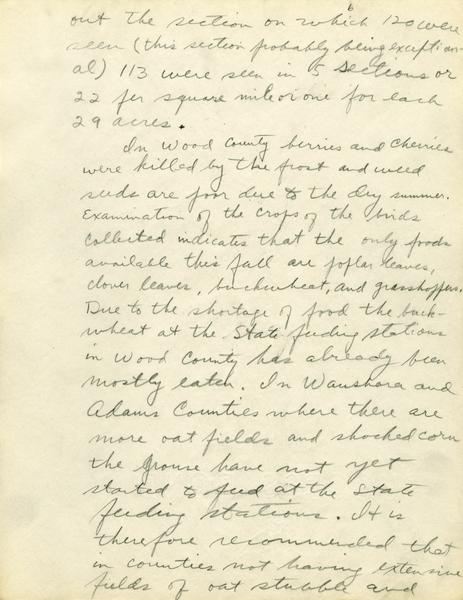 out the section on which 120 were
seen (this section probably being exception-
al) 113 were seen in 5 sections or
22 per square mile or one for each
29 acres.
In Wood County berries and cherries
were killed by the frost and weed
seeds are poor due to the dry summer.
Examination of the crops of the birds
collected indicates that the only foods
available this fall are poplar leaves,
clover leaves, buckwheat, and grasshoppers.
Due to the shortage of food the buck-
wheat at the State feeding stations
in Wood County has already been
mostly eaten. In Waushara and
Adams Counties where there are
more oat fields and shocked corn
the grouse have not yet
started to feed at the State
feeding stations. It is
therefore recommended that
in counties not having extensive
fields of oat stubble and